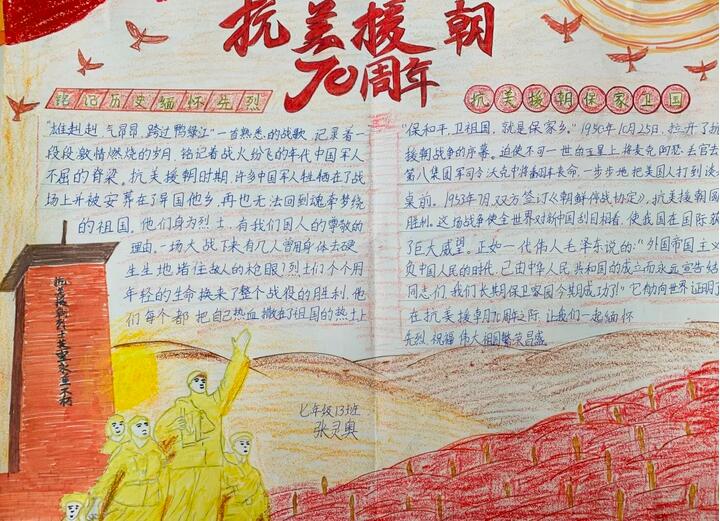 抗美援朝
70周年
铭记历史缅怀先烈
"雄赳赳,气昂昂,跨过鸭绿江"一首熟悉的战歌,记录着一
段段激情燃烧的岁月,铭记着战火纷飞的年代中国军人
不屈的脊梁。抗美援朝时期,许多中国军人牺牲在了战
场上并被安葬在了异国他乡,再也无法回到魂牵梦绕
的祖国。他们身为烈士,有我们国人的尊敬的
理由,一场大战下来有几人曾用身体去硬
生生地堵住敌人的枪眼?烈士们个个用
年轻的生命换来了整个战役的胜利,他
们每个都把自己热血撒在了祖国的热土上
抗美援朝保家卫国
"保和平,卫祖国,就是保家乡。"1950年10月25日,拉开了抗
援朝战争的序幕。迫使不可一世的五星上将麦克阿瑟丢官去
第八集团军司令沃克中将和命,一步步地把美国人打到谈
桌前。1953年7月,双方签订《朝鲜停战协定》,抗美援朝
胜利。这场战争使全世界对新中国刮目相看,使我国在国际
了巨大威望。正如一代伟人毛泽东说的:"外国帝国主
负中国人民的时代,已由中华人民共和国的成立而永宣告结
同志们,我们长期保卫家园今期成功了!"它们向世界证明了
在抗美援朝70周年之际,让我们一起缅怀
先烈,祝福伟大祖国繁荣昌盛。
七年级13班
张灵奥